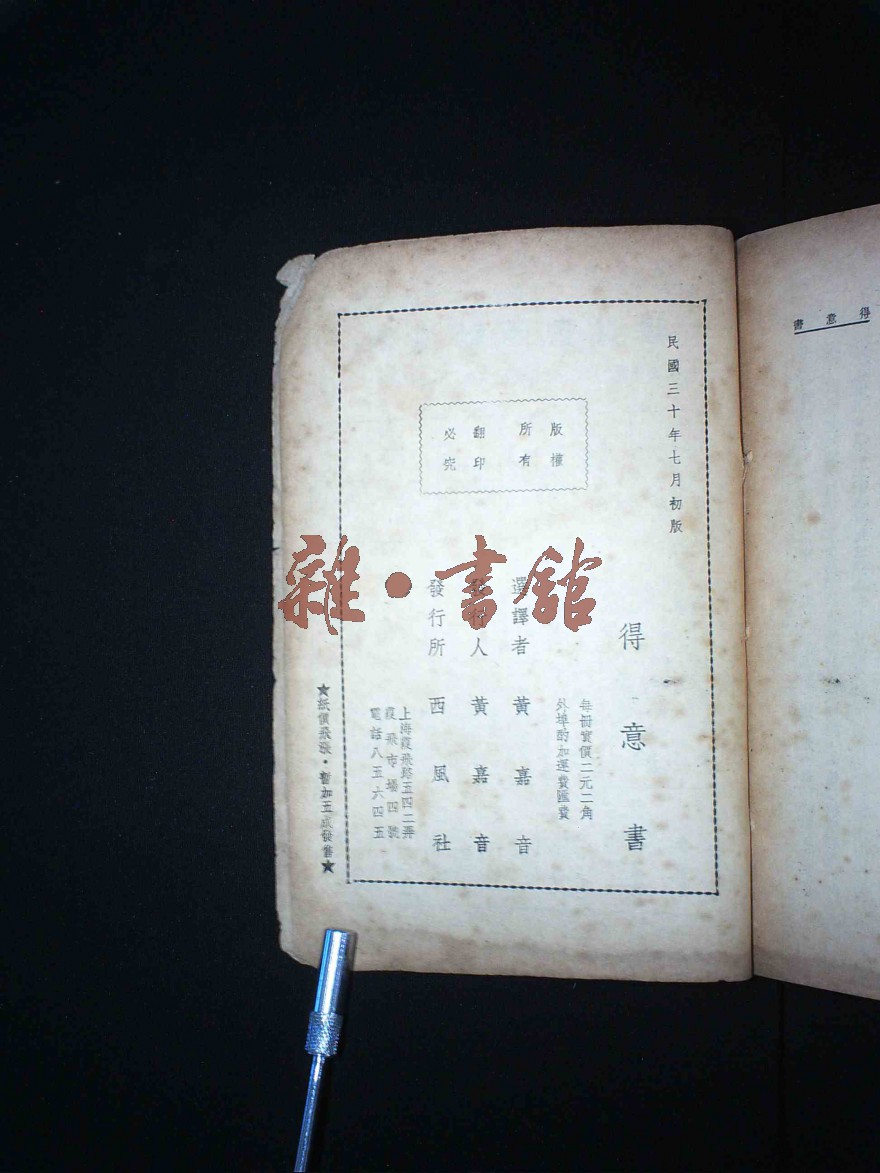 得意書
民國三十年七月初版
版權
所有
翻印
必究
得意書
每冊實價二元二角
外埠酌加運費匯費
選譯者 黃嘉音
發行人 黃嘉音
發行所 西風社
上海霞飛路五四二弄
霞飛市場四號
電話八五六四五
★紙價飛漲・暫加五成發售★
雜·書館